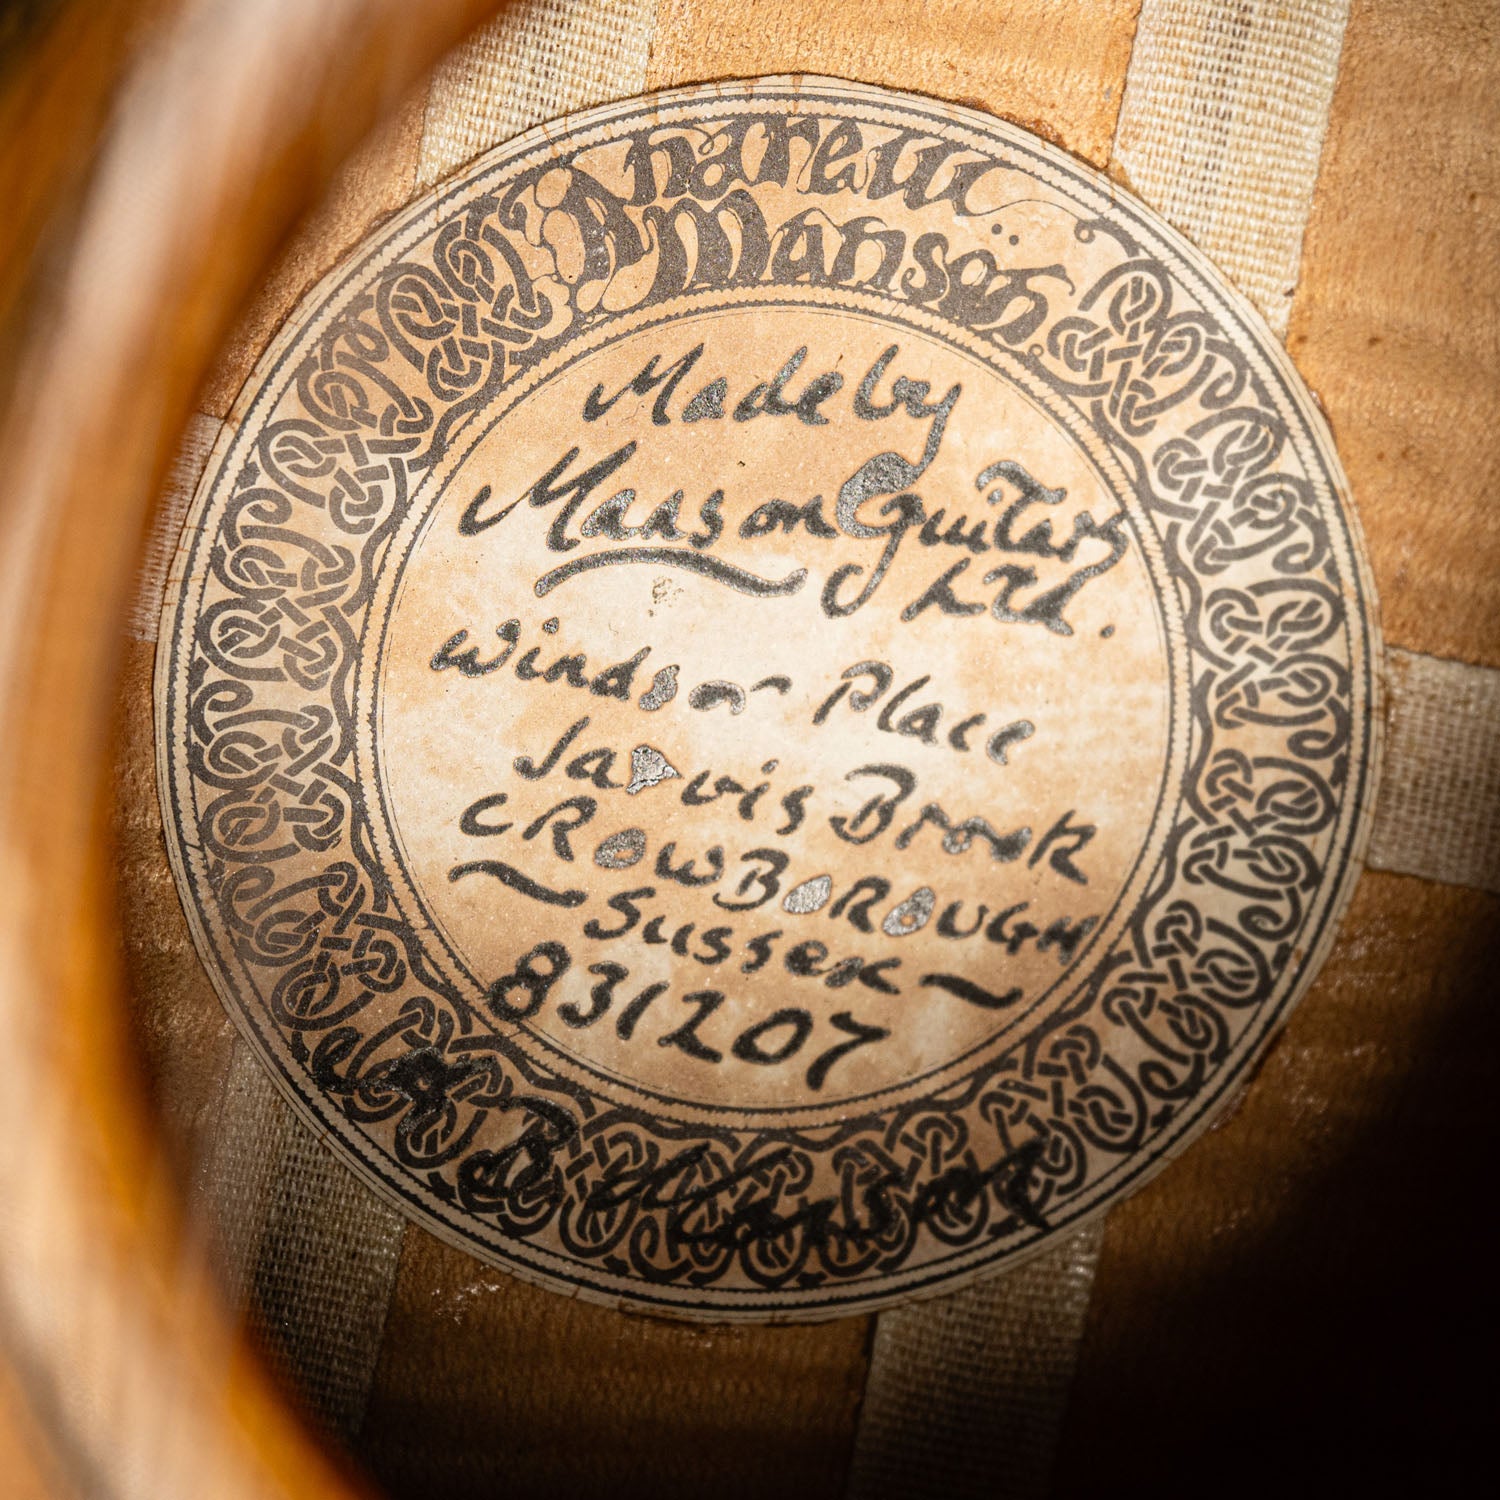 Andrew
Manson
Made by
Manson Guitars
Ltd.
Windsor Place
Jarvis Brook
CROWBOROUGH
~ Sussex ~
831207
A B Manson